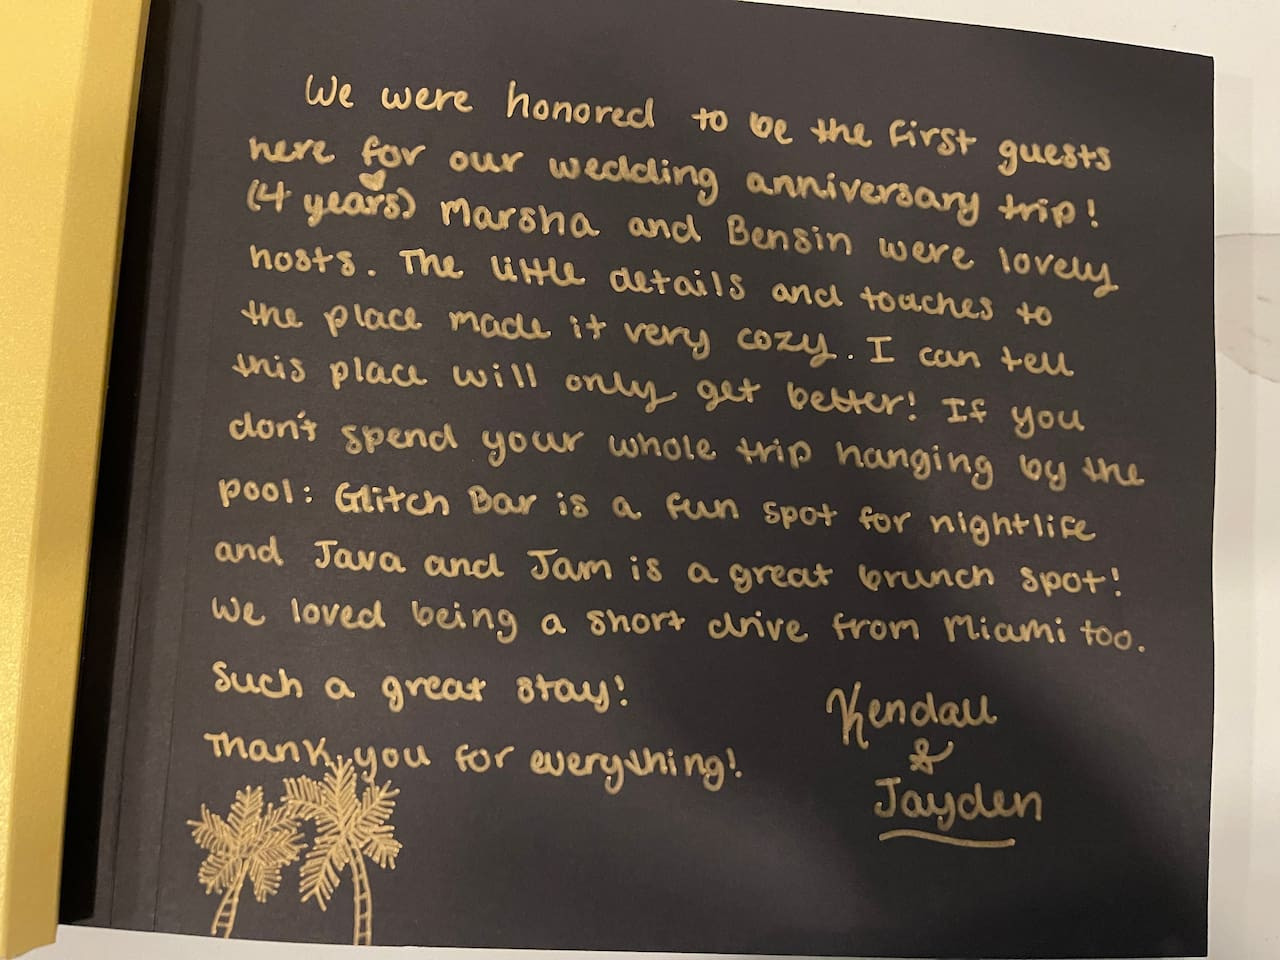 We were honored to be the first guests
here for our wedding anniversary trip!
(4 years) Marsha and Bensin were lovely
hosts. The little details and touches to
the place made it very cozy. I can tell
this place will only get better! If you
don't spend your whole trip hanging by the
pool: Glitch Bar is a fun spot for nightlife
and Java and Jam is a great brunch spot!
We loved being a short drive from Miami too.
Such a great stay!
Thank you for everything!
Kendall
&
Jayden